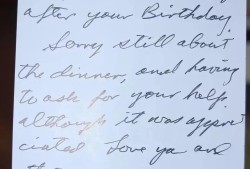 after your Birthday.
Sorry still about
the dinner, and having
to ask for your help
although it was appre
ciated Love ya and